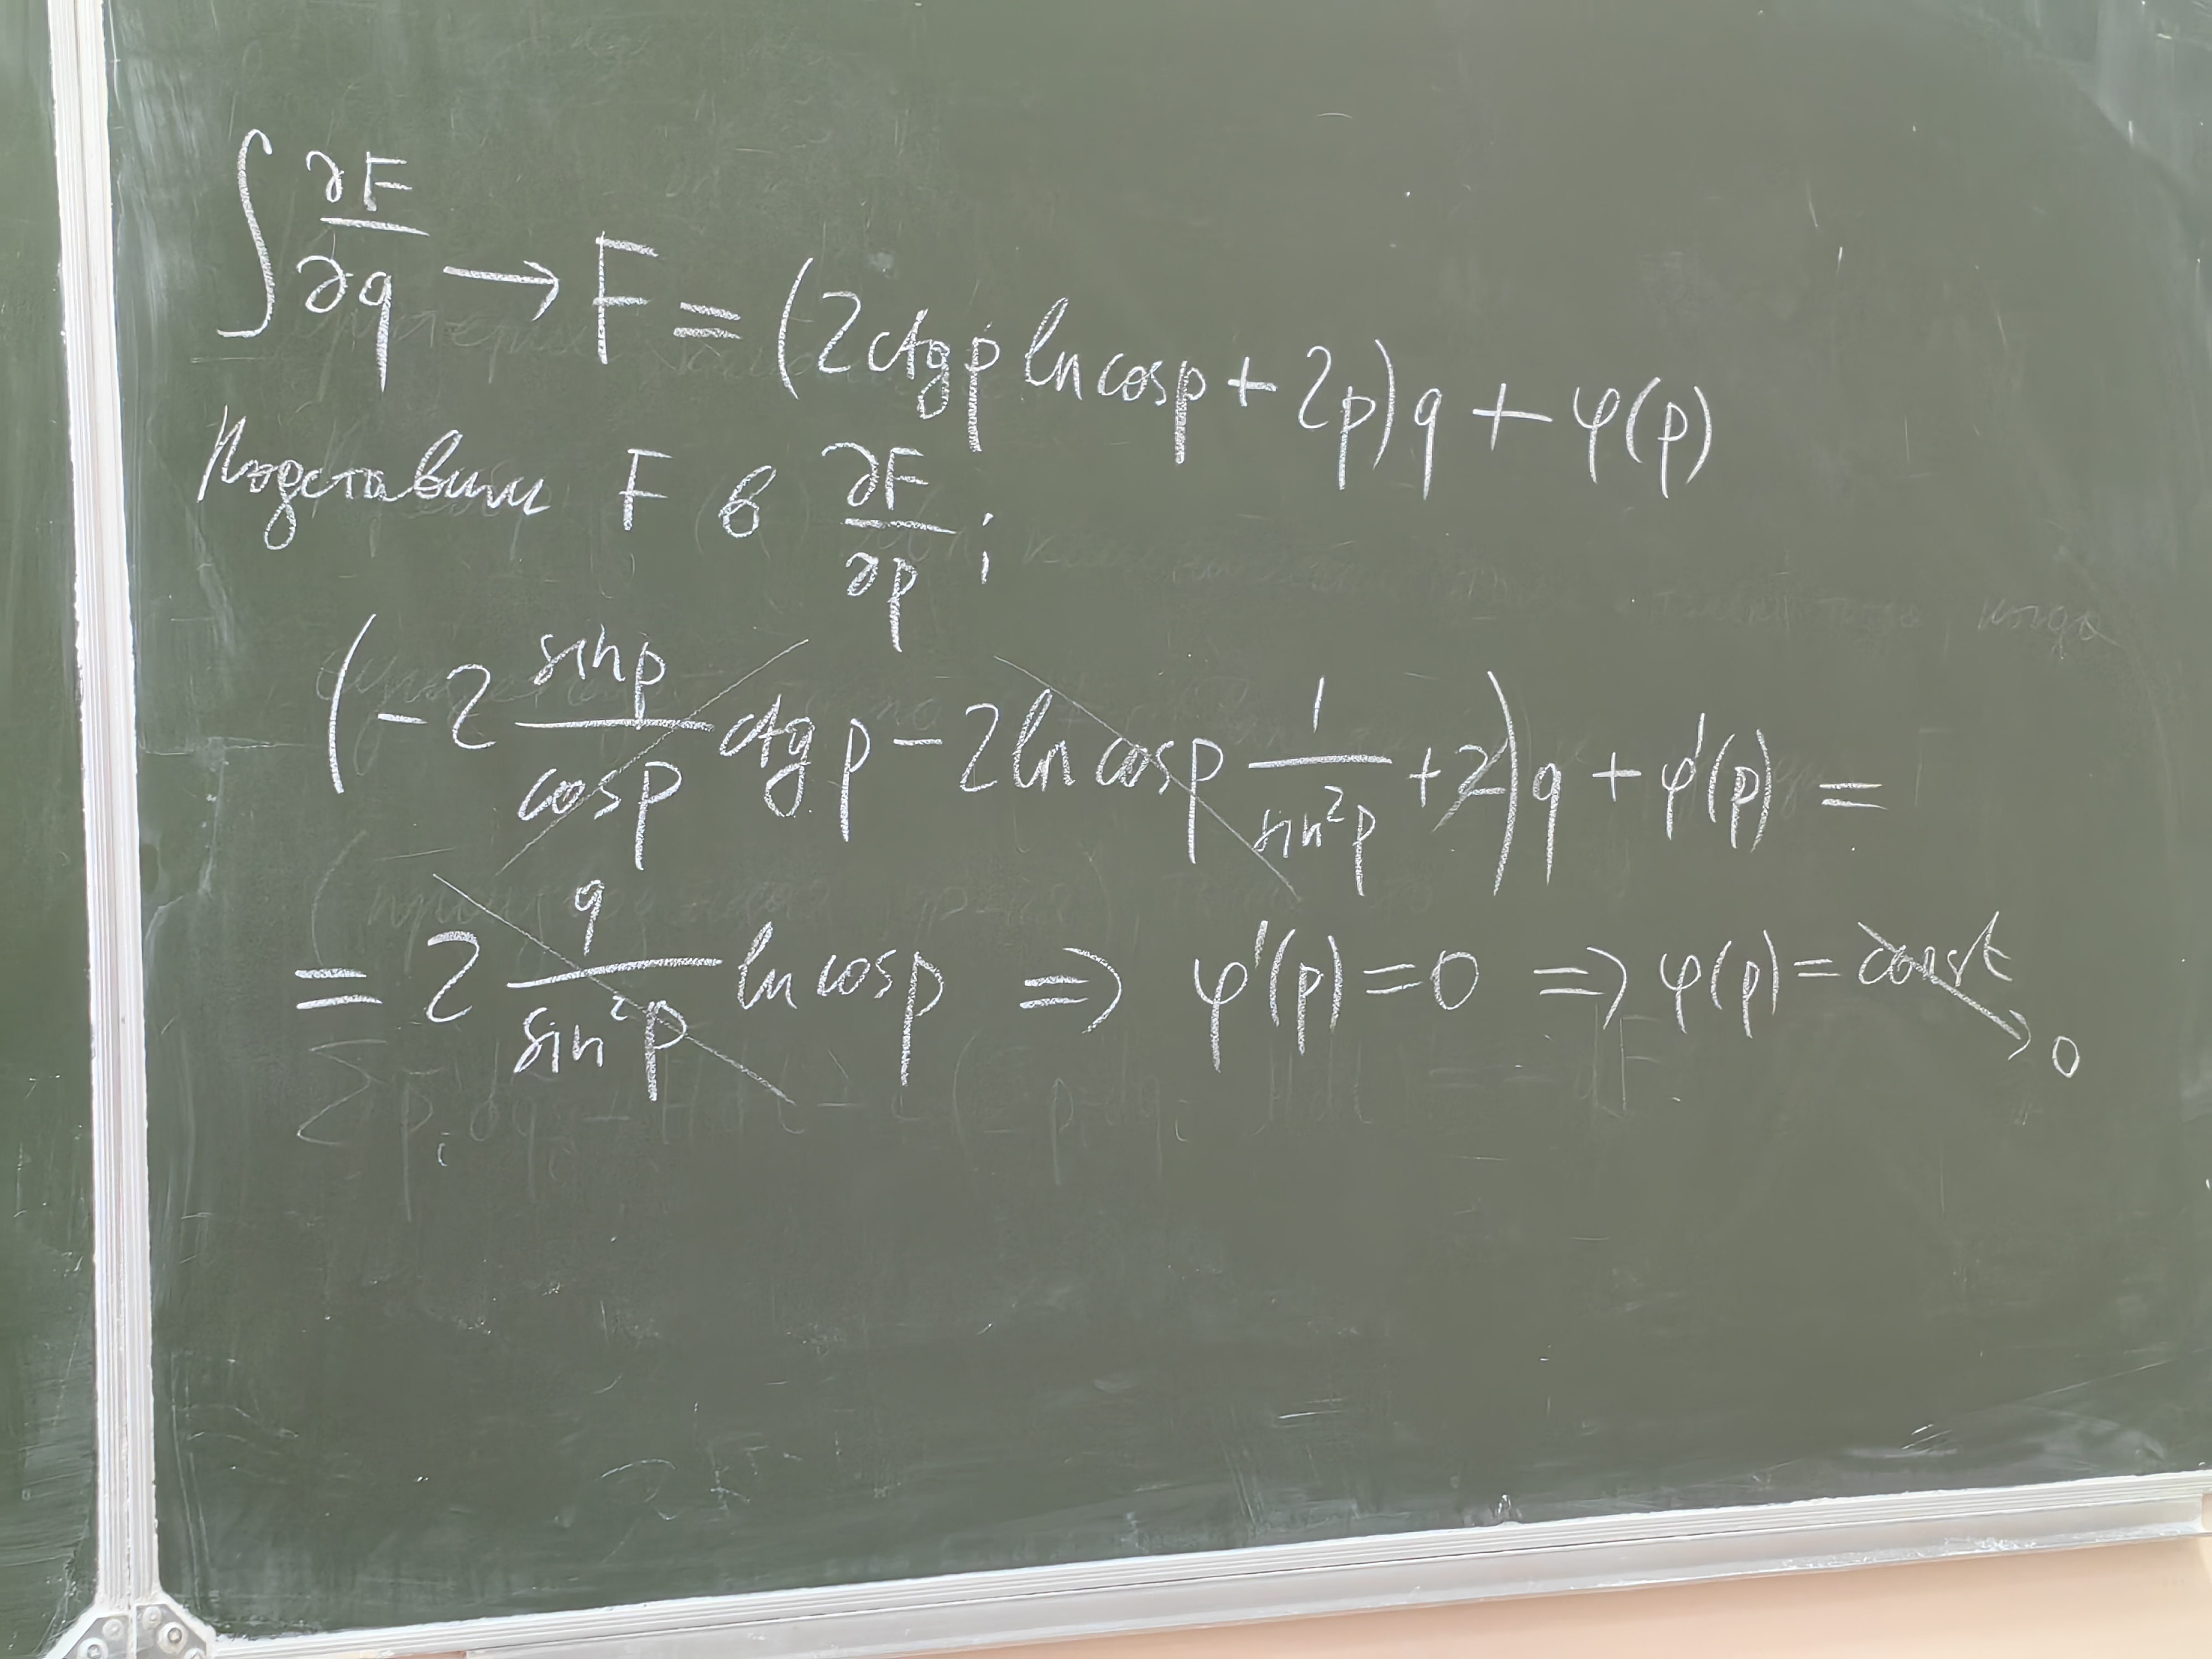 ∫ ∂F/∂q → F = (2ctgp ln cosp + 2p)q + φ(p)
Подставим F в ∂F/∂p :
(-2 sinp/cosp ctgp - 2 ln cosp 1/sin²p + 2)q + φ'(p) =
= 2 q/sin²p ln cosp ⇒ φ'(p) = 0 ⇒ φ(p) = const → 0